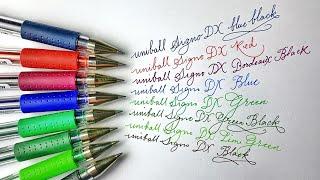 uniball Signo DX blue black
uniball Signo DX Red
uniball Signo DX Bordeaux Black
uniball Signo DX Blue
uniball Signo DX Green
uniball Signo DX Green Black
uniball Signo DX Lime Green
uniball Signo DX Black